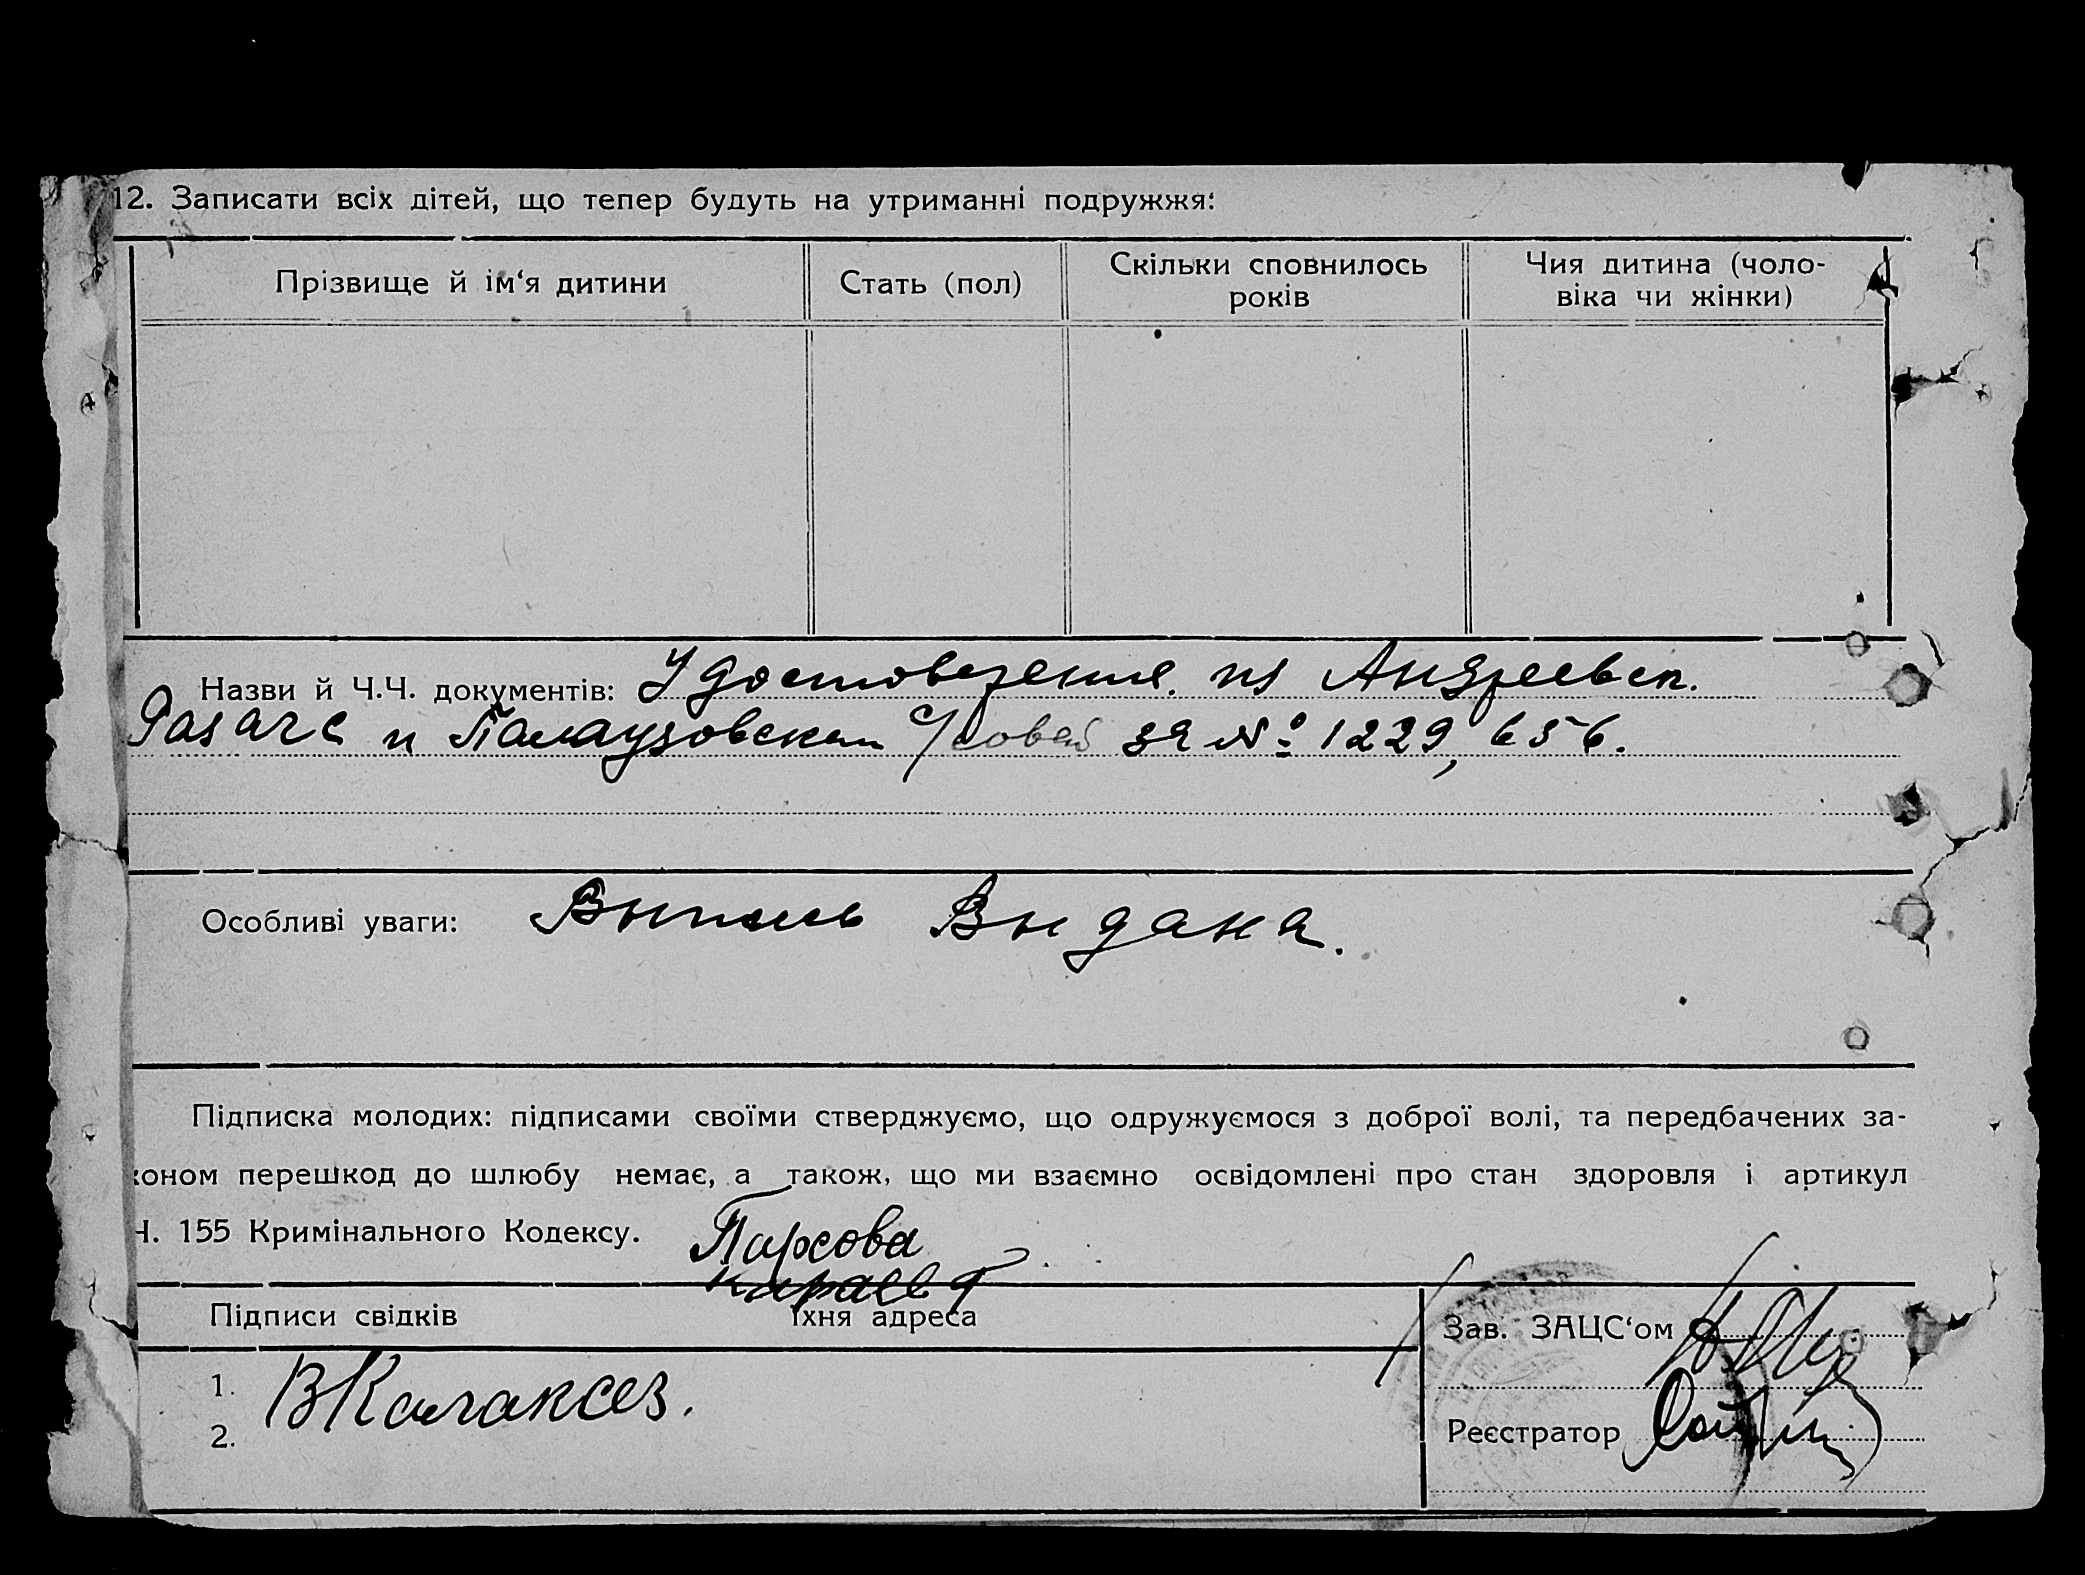 12. Записати всіх дітей, що тепер будуть на утриманні подружжя:
Прізвище й ім‘я дитини
Стать (пол)
Скільки сповнилось
років
Чия дитина (чоло-
віка чи жінки)
Назви й Ч.Ч. документів: Удостоверения. из Андреевск.
и Палаузовской С/совет за № 1229, 656.
Особливі уваги: Выпись Выдана.
Підписка молодих: підписами своїми стверджуємо, що одружуємося з доброї волі, та передбачених за-
коном перешкод до шлюбу немає, а також, що ми взаємно освідомлені про стан здоровля і артикул
Ч. 155 Кримінального Кодексу. Парсова
Караев
Підписи свідків
їхня адреса
Зав. ЗАЦС‘ом
1.
2.
Реєстратор